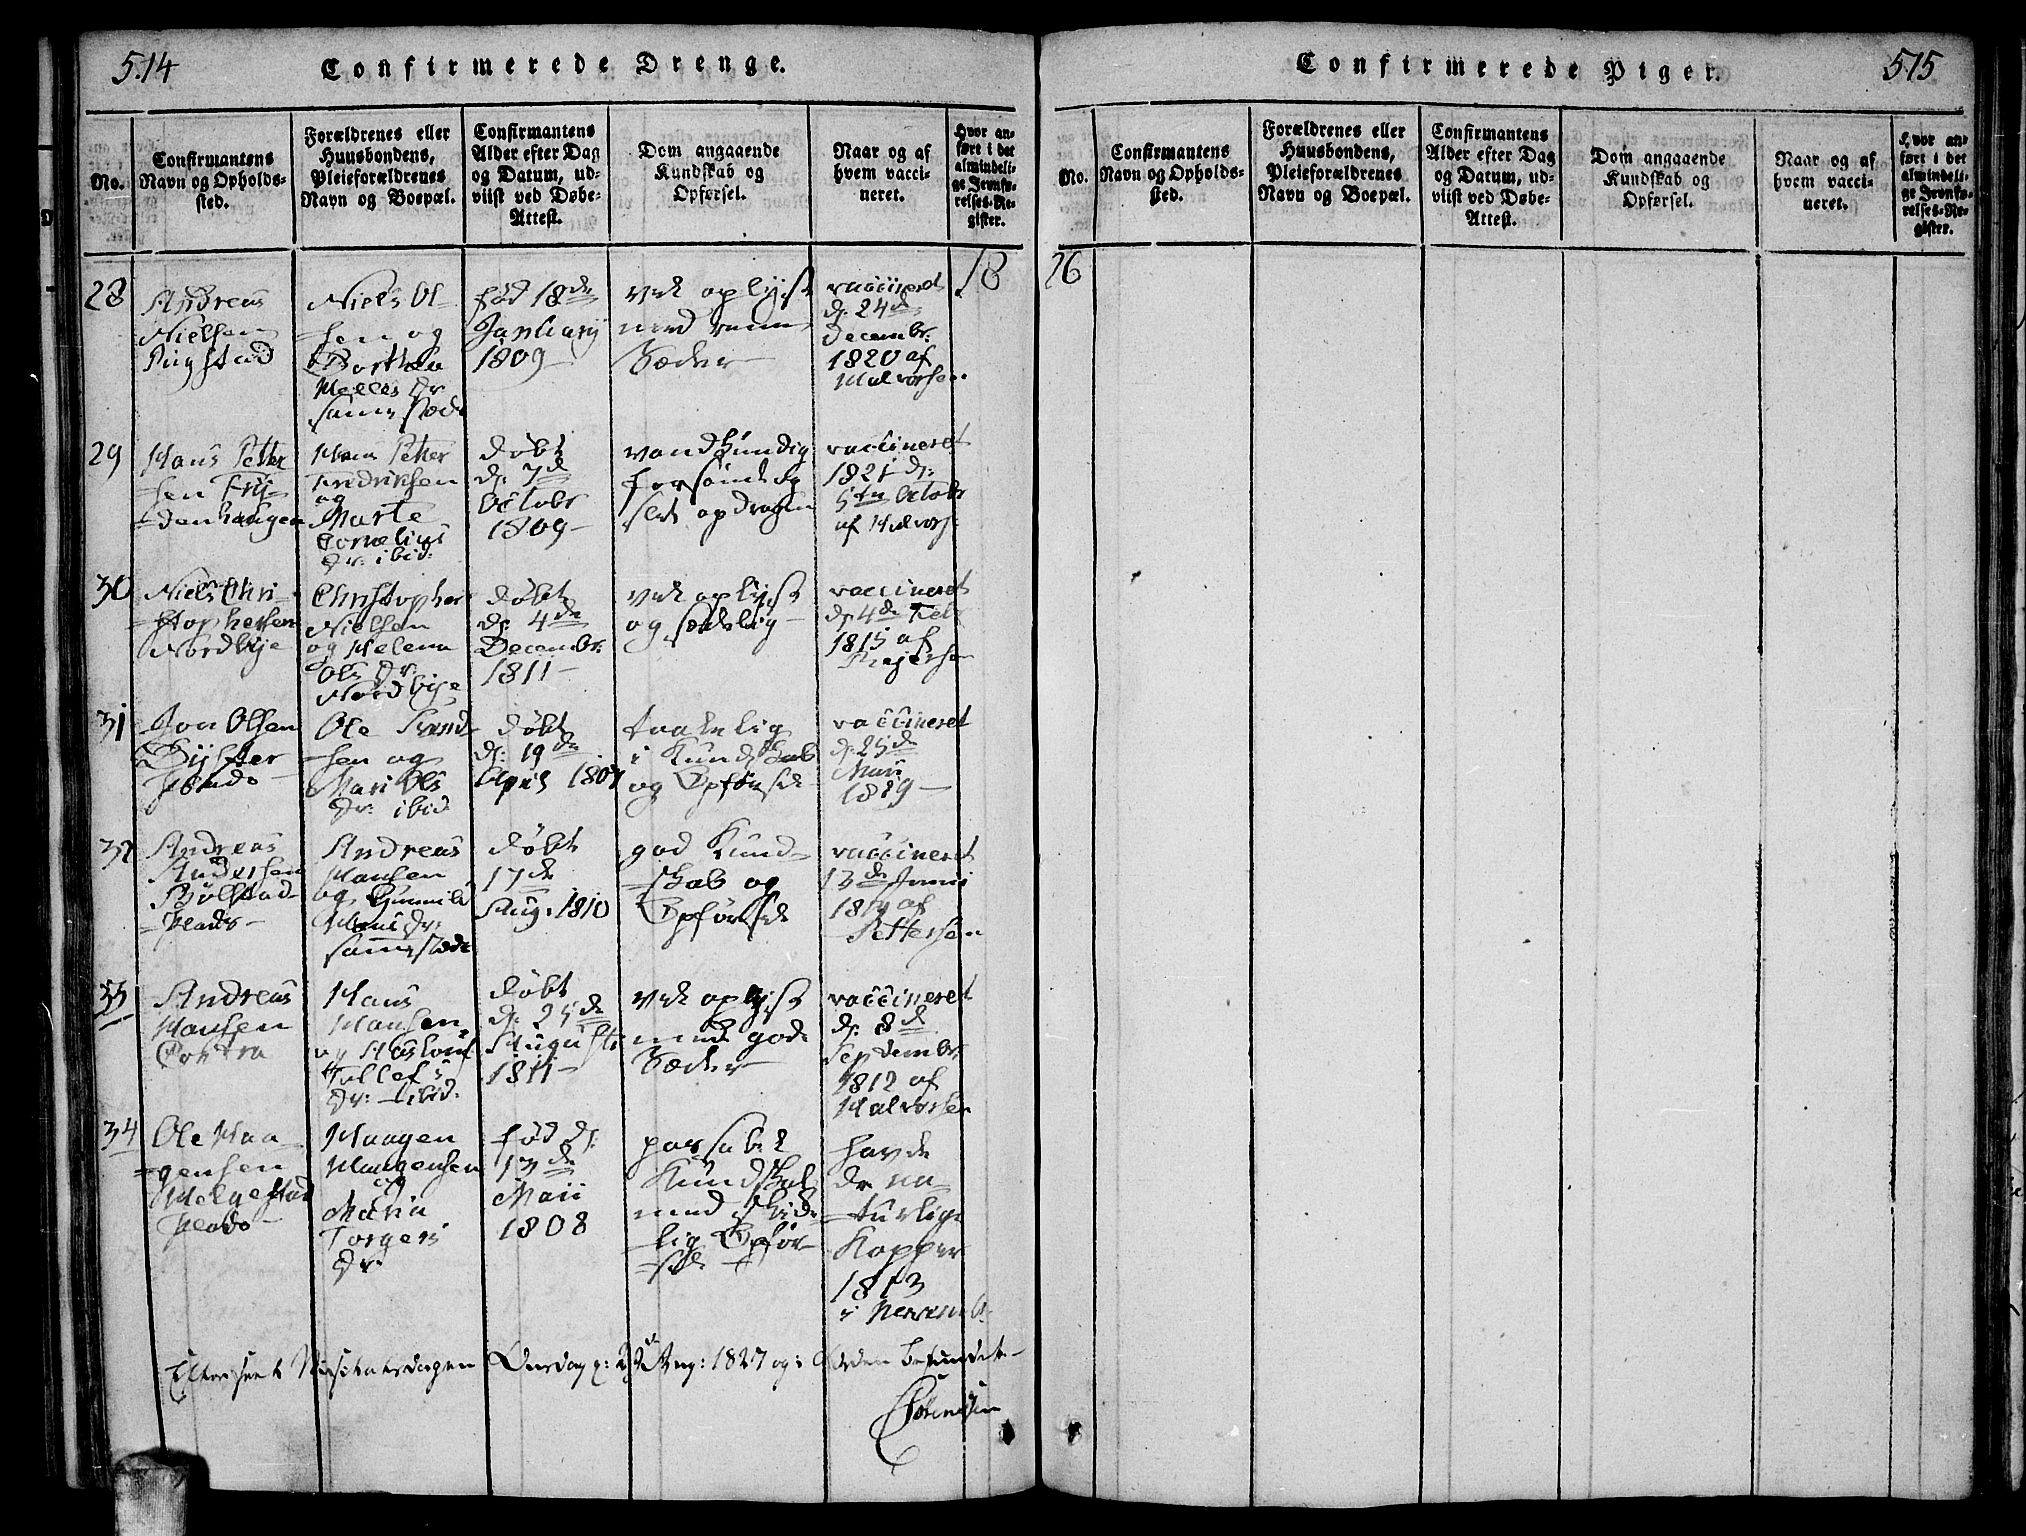 514
Confirmerede Drenge.
No.
Confirmantens
Navn og Opholds-
sted.
Forældrenes eller
Huusbondens,
Pleieforældrenes
Navn og Boepæl.
Confirmantens
Alder efter Dag
og Datum, ud-
viist ved Døbe-
Attest.
Dom angaaende
Kundskab og
Opførsel.
Naar og af
hvem vacci-
neret.
Hvor an-
ført i det
almindeli-
ge Jevnfø-
relses-Re-
gister.
1826
28
Andreas
Nielsen
Niels Ol-
sen og
Berthe
Melles Dr
sammestæds
fød 18de
Januarij
1809
vel oplyst
med
Sæder
vaccineret
d. 24de
Decembr.
1820 af
Halvorsen.
29
Hans Petter
sen Fry-
denhaugen
Hans Petter
Fredriksen
og
Marte
Cornelius
Dr: ibid:
døbt
d. 7de
Octobr
1809
vankundig
opdragen
vaccineret
1821 d:
5te Octobr
af Halvors:
30
Niels Chri-
stophersen
Nordbye
Christopher
Nielsen
og Helena
Ols Dr
Nordbye
døbt
d. 4de
Decembr.
1811
vel oplyst
og sædelig
vaccineret
d. 4de Feb
1815 af
31
Jon Olsen
Ole
sen og
Mari Ols
Dr: ibid
døbt
d: 19de
April
taalelig
i Kundskab
og Opførsel
vaccineret
d. 25de
Mari
1819
32
Andreas
Andersen
Andreas
Hansen
og Gunnild
Hans Dr:
sammestæds
døbt
17de
Aug. 1810
god Kund-
skab og
Opførsel
vaccineret
13de Junii
af
Pettersen
33
Andreas
Hansen
Hans
Hansen
og
Tollefs
Dr: ibid.
døbt
d. 25de
Augusti
1811
vel oplyst
med gode
Sæder
vaccineret
d. 8de
Septembr.
1812 af
Halvorsen
34
Ole Haa-
gensen
Helgestad
Haagen
Haagensen
og
Maria
Torgers
Dr.
fød d:
13de
Maii
1808
passabel
Kundskab
med skikke-
lig Opfør-
sel
havde
de na-
turlige
Kopper
1813
i Novemb:
Efterseet Visitatsdagen Onsdag Aug: 1827 og i Orden befundet
Sørenssen
Confirmerede Piger.
515
No.
Confirmantens
Navn og Opholds-
sted.
Forældrenes eller
Huusbondens,
Pleieforældrenes
Navn og Boepæl.
Confirmantens
Alder efter Dag
og Datum, ud-
viist ved Døbe-
Attest.
Dom angaaende
Kundskab og
Opførsel.
Naar og af
hvem vacci-
neret.
Hvor an-
ført i det
almindeli-
ge Jevnfø-
relses-Re-
gister.